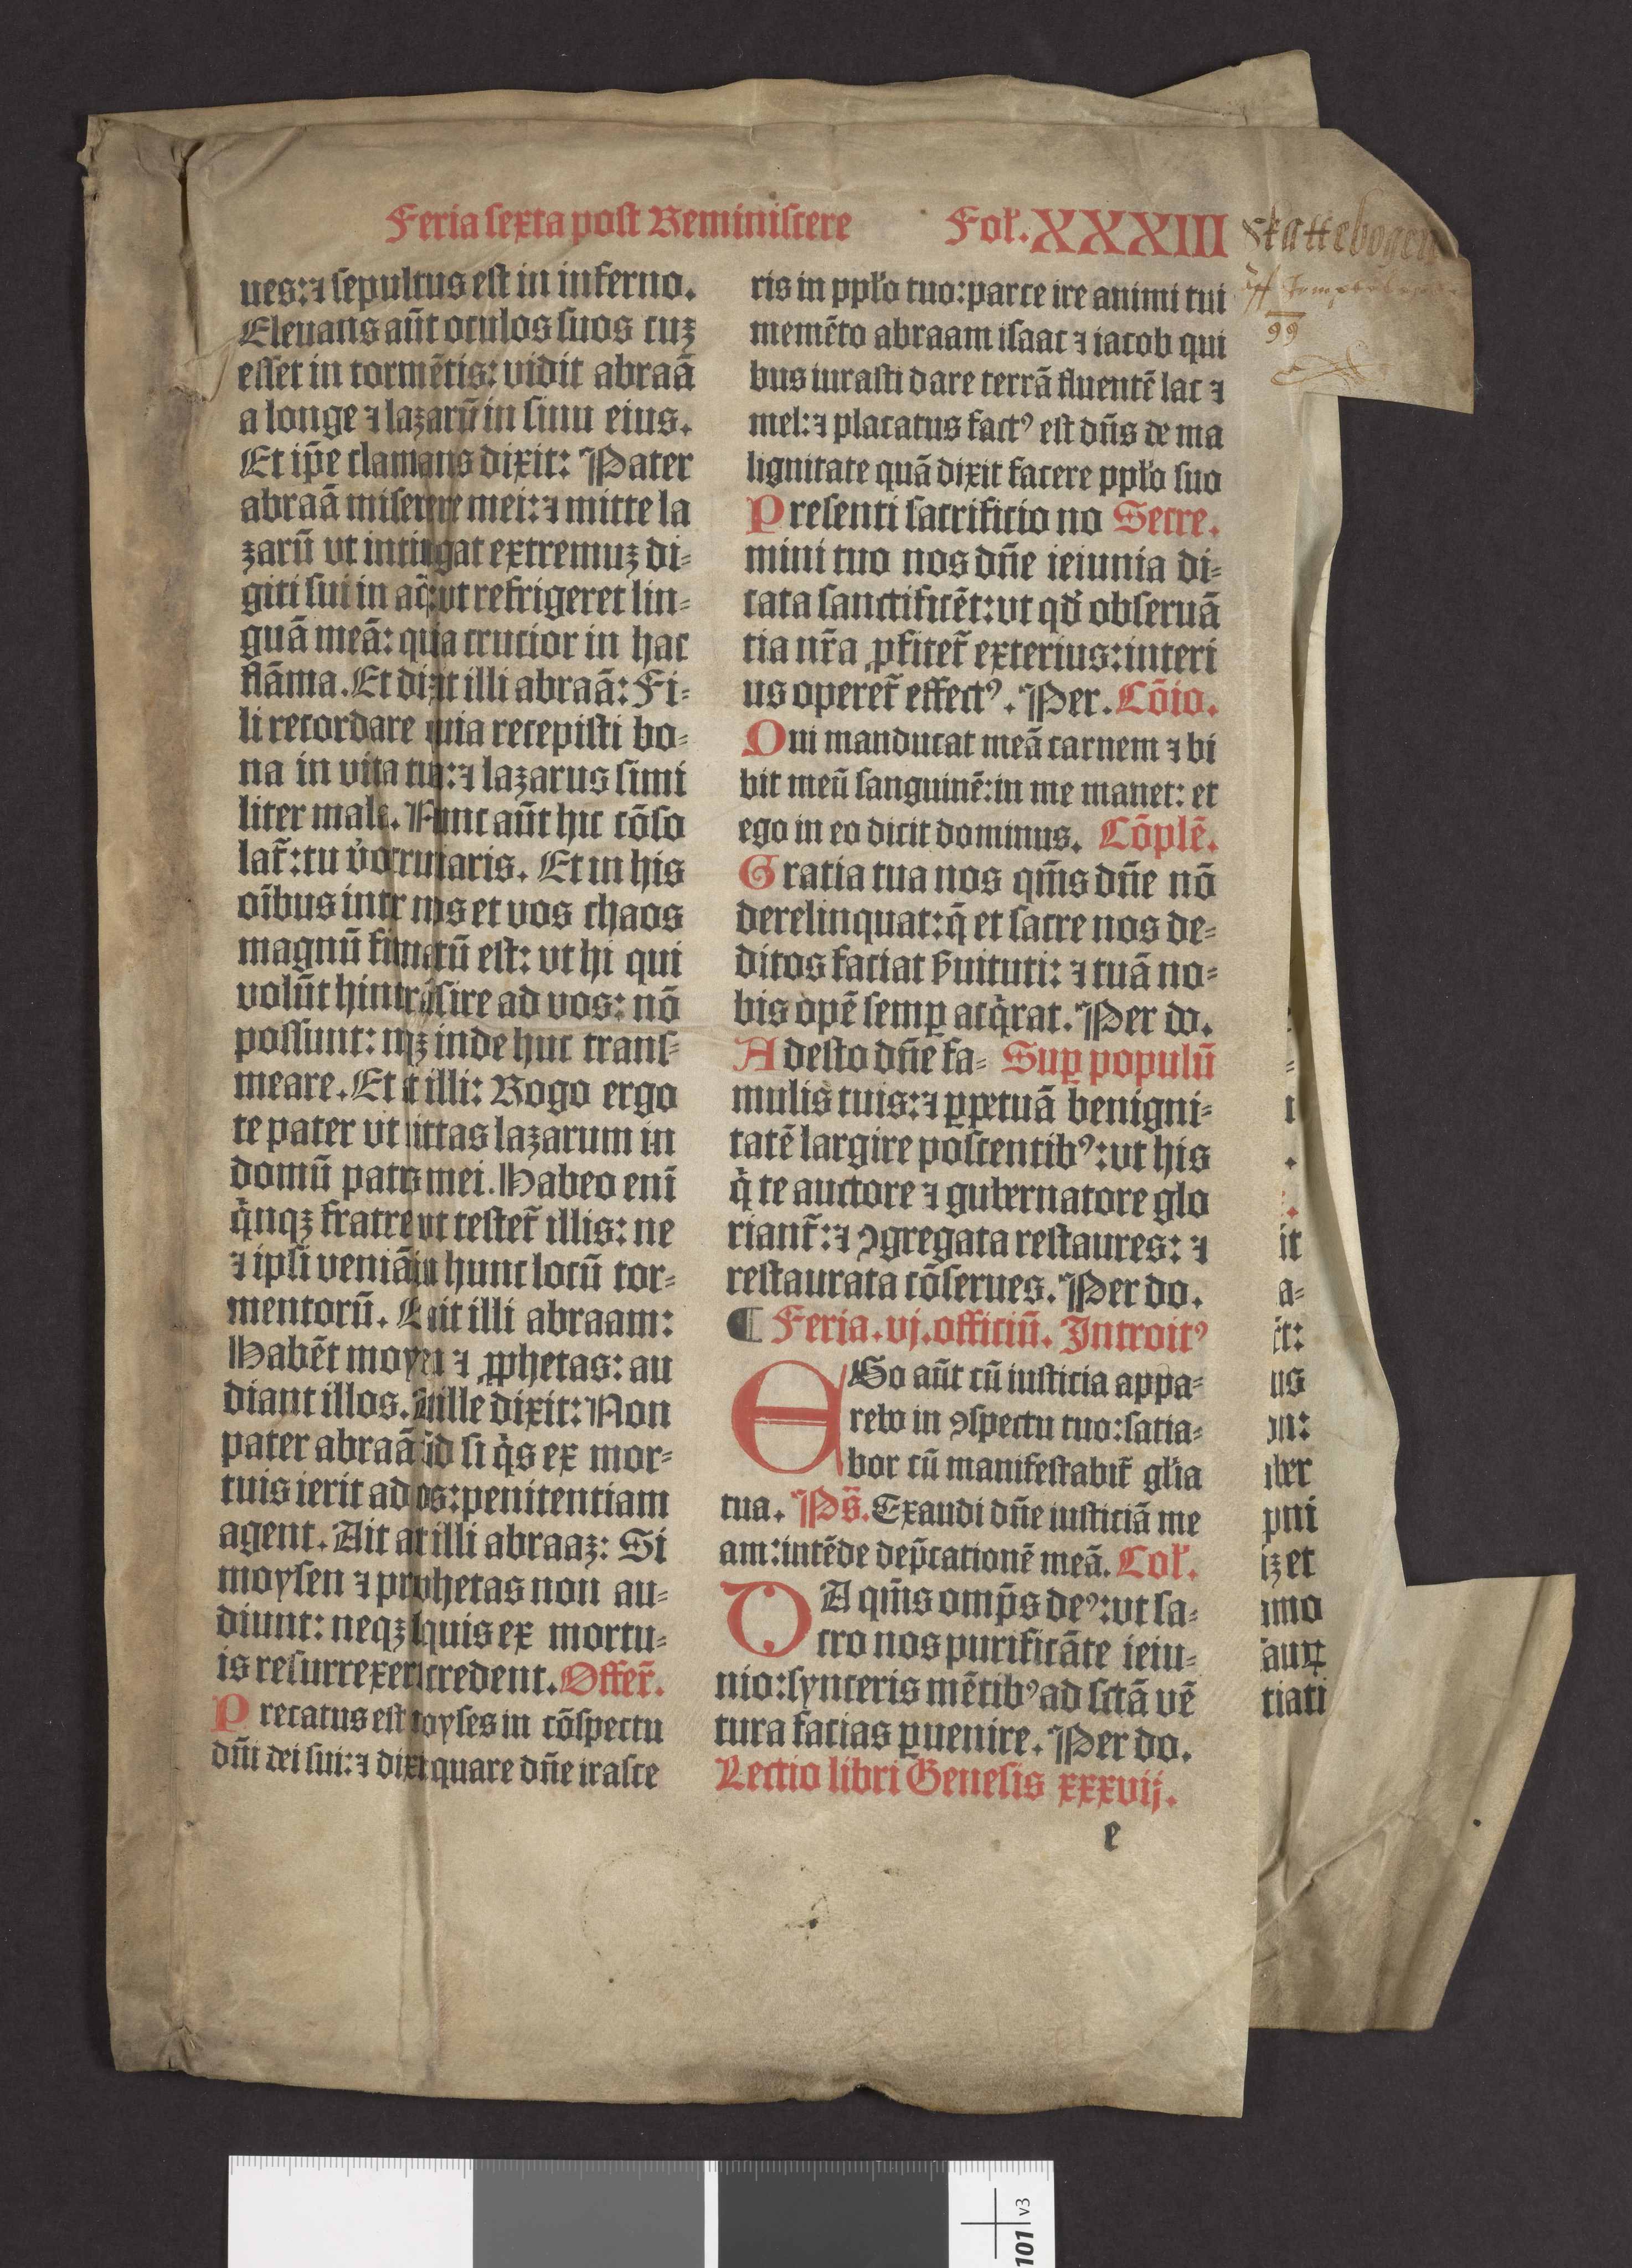 Feria sexta post Reminiscere Fol. XXXIII
ues: ⁊ sepultus est in inferno.
Eleuans aūt oculos suos cuꝫ
esset in tormētis: vidit abraā
a longe ⁊ lazarū in sinu eius.
Et ip̄e clamans dixit: Pater
abraā miserere mei: ⁊ mitte la
zarū vt intingat extremuꝫ di⸗
giti sui in : vt refrigeret lin⸗
guā meā: quia crucior in hac
flāma. Et dixit illi abraā: Fi⸗
li recordare quia recepisti bo⸗
na in vita tua: ⁊ lazarus simi
liter mala. Nunc aūt hic cōso
lat̄: tu crutiaris. Et in his
oībus inter nos et vos chaos
magnū firmatū est: vt hi qui
volūt hinc trāsire ad vos: nō
possunt: neqꝫ inde huc trans⸗
meare. Et illi: Rogo ergo
te pater vt mittas lazarum in
domū patris mei. Habeo enī
qͥnqꝫ fratres vt testet̄ illis: ne
⁊ ipsi veniāt in hunc locū tor⸗
mentorū. Et ait illi abraam:
Habēt moysen ⁊ ꝓphetas: au
diant illos. At ille dixit: Non
pater abraā sꝫ si qͥs ex mor⸗
tuis ierit ad eos: penitentiam
agent. Ait aūt illi abraaꝫ: Si
moysen ⁊ prophetas non au⸗
diunt: neqꝫ si quis ex mortu⸗
is resurrexerit credent. Offer̄.
Precatus est moyses in cōspectu
dn̄i dei sui: ⁊ dixit quare dn̄e irasce
ris in pplo tuo: parce ire animi tui
memēto abraam isaac ⁊ iacob qui
bus iurasti dare terrā fluentē lac ⁊
mel: ⁊ placatus factꝰ est dn̄s de ma
lignitate quā dixit facere pplo suo
Presenti sacrificio no Secre.
mini tuo nos dn̄e ieiunia di⸗
cata sanctificēt: vt qd̓ obseruā
tia nr̄a ꝓfitet̄ exterius: interi
us operet̄ effectꝰ. Per. Cōio.
Qui manducat meā carnem ⁊ bi
bit meū sanguinē: in me manet: et
ego in eo dicit dominus. Cōplē.
Gratia tua nos qm̄s dn̄e nō
derelinquat: q̄ et sacre nos de⸗
ditos faciat ẜuituti: ⁊ tuā no⸗
bis opē semꝑ acqͥrat. Per do.
Adesto dn̄e fa⸗ Suꝑ populū
mulis tuis: ⁊ ꝑpetuā benigni⸗
tatē largire poscentibꝰ: vt his
qͥ te auctore ⁊ gubernatore glo
riant̄: ⁊ ꝯgregata restaures: ⁊
restaurata cōserues. Per do.
¶ Feria. vj. officiū. Introitꝰ
EGo aūt cū iusticia appa⸗
rebo in ꝯspectu tuo: satia⸗
bor cū manifestabit̄ gl̓ia
tua. Ps̄. Exaudi dn̄e iusticiā me
am: intēde dep̄cationē meā. Col.
DA qm̄s omp̄s deꝰ: vt sa⸗
cro nos purificāte ieiu⸗
nio: synceris mētibꝰ ad sctā vē
tura facias ꝑuenire. Per do.
Lectio libri Genesis xxxvij.
e
Skattebogen
99
it
a⸗
us
pni
et
tiati
101 v3